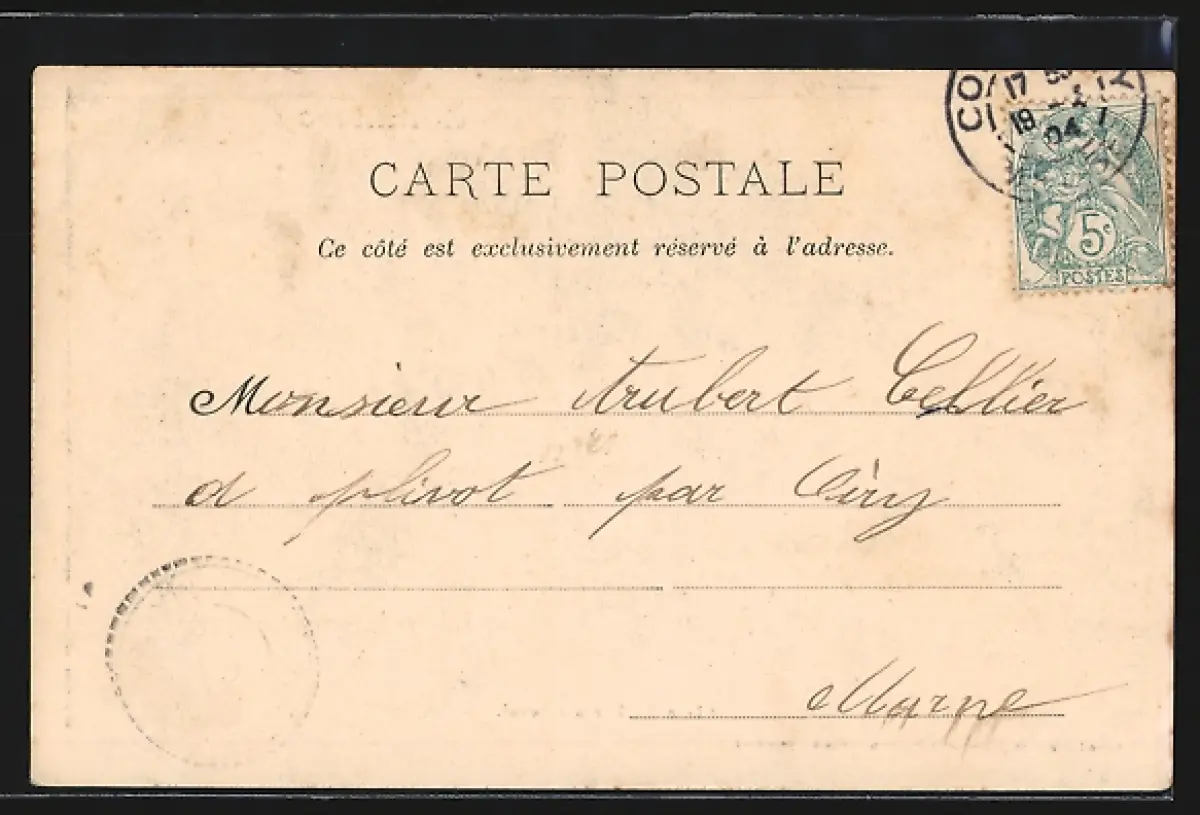 CO Y
17 5
19
04
5c
POSTES
CARTE POSTALE
Ce côté est exclusivement réservé à l'adresse.
Monsieur trubert Cellier
a plivot par Oiry
Marne